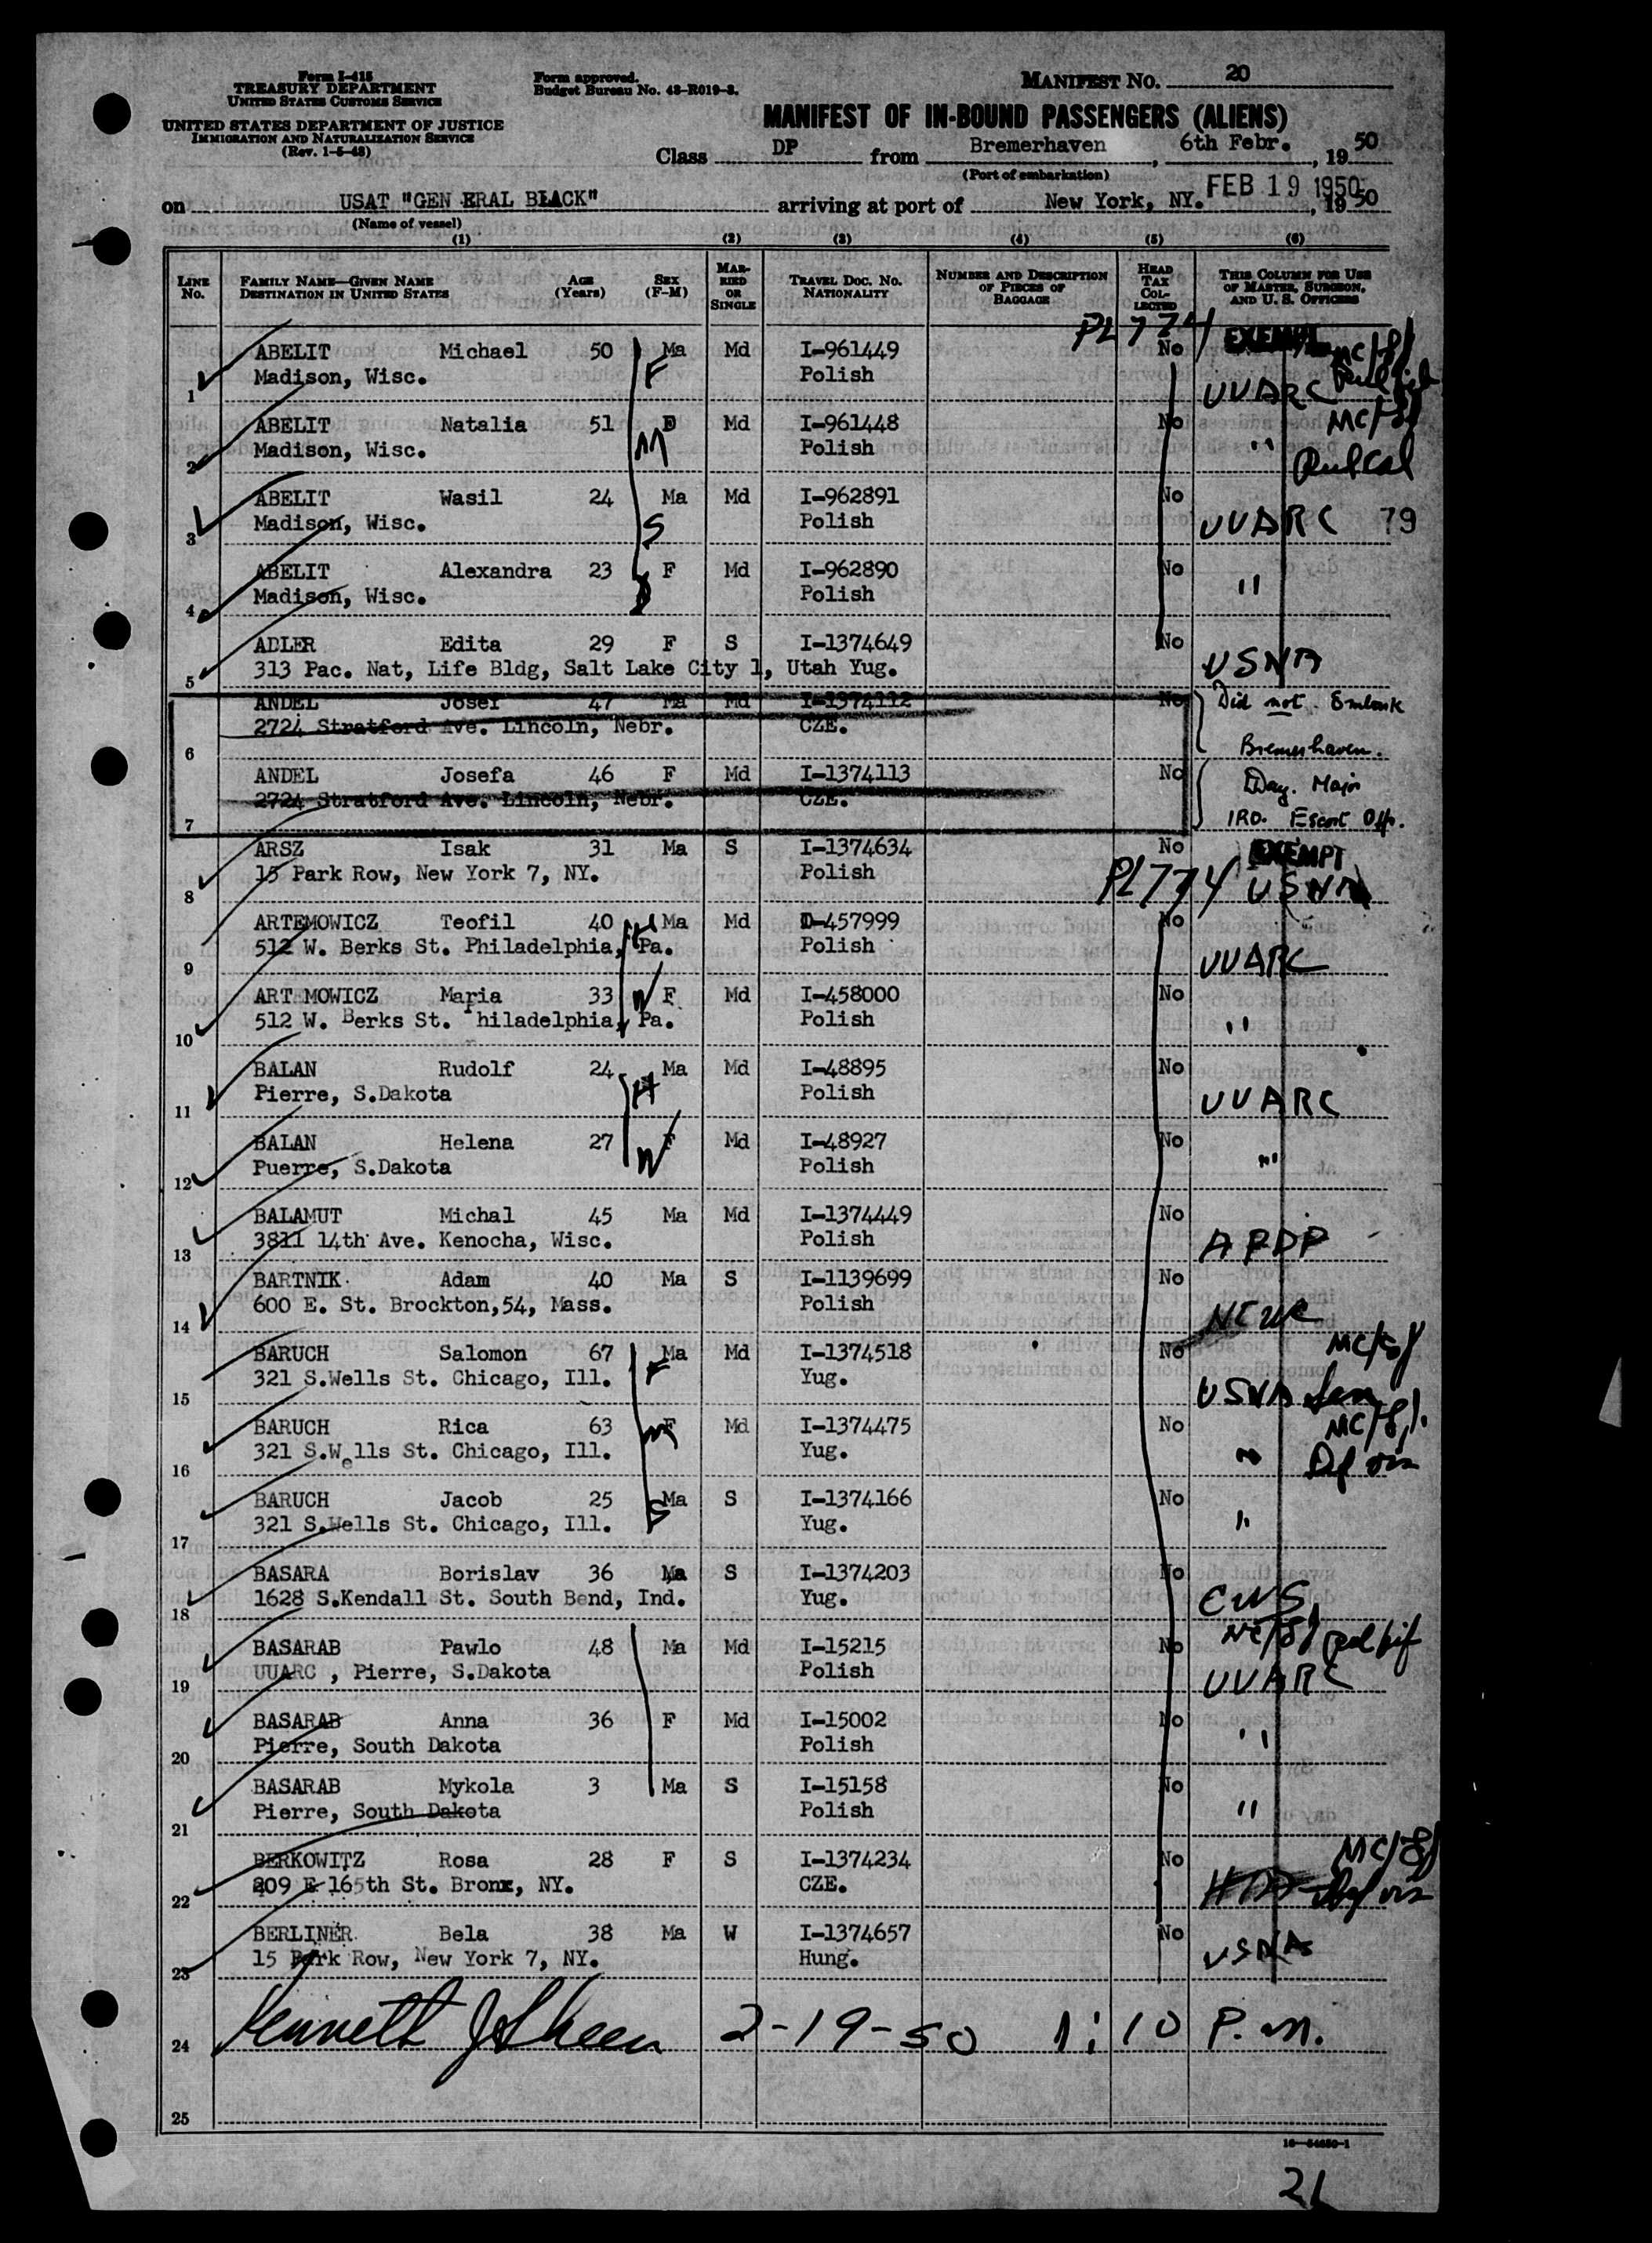 Form I-415
TREASURY DEPARTMENT
UNITED STATES CUSTOMS SERVICE
UNITED STATES DEPARTMENT OF JUSTICE
IMMIGRATION AND NATURALIZATION SERVICE
(Rev. 1-5-48)
Form approved.
Budget Bureau No. 43-R019-3.
MANIFEST NO. 20
MANIFEST OF IN-BOUND PASSENGERS (ALIENS)
Class DP from Bremerhaven, 6th Febr., 19 50
(Port of embarkation)
on USAT "GEN ERAL BLACK" arriving at port of New York, NY. FEB 19 1950, 19 50
(Name of vessel)
(1) (2) (3) (4) (5) (6)
LINE No. FAMILY NAME—GIVEN NAME DESTINATION IN UNITED STATES AGE (Years) SEX (F-M) MARRIED OR SINGLE TRAVEL DOC. NO. NATIONALITY NUMBER AND DESCRIPTION OF PIECES OF BAGGAGE HEAD TAX COLLECTED THIS COLUMN FOR USE OF MASTER, SURGEON, AND U. S. OFFICERS
PL 774 EXEMPT
ABELIT Michael 50 Ma Md I-961449 No MC/8/
1 Madison, Wisc. F Polish UUARC
ABELIT Natalia 51 F Md I-961448 No MC/8/
2 Madison, Wisc. M Polish "
ABELIT Wasil 24 Ma Md I-962891 No
3 Madison, Wisc. S Polish UUARC 79
ABELIT Alexandra 23 F Md I-962890 No
4 Madison, Wisc. Polish "
ADLER Edita 29 F S I-1374649 No
5 313 Pac. Nat, Life Bldg, Salt Lake City 1, Utah Yug. USNA
ANDEL Josef 47 Ma Md I-1374112 No Did not Embark
6 2724 Stratford Ave. Lincoln, Nebr. CZE. Bremerhaven.
ANDEL Josefa 46 F Md I-1374113 No Day. Major
7 2724 Stratford Ave. Lincoln, Nebr. CZE. IRO. Escort Off.
ARSZ Isak 31 Ma S I-1374634 No EXEMPT
8 15 Park Row, New York 7, NY. Polish PL774 USNA
ARTEMOWICZ Teofil 40 H Ma Md D-457999 No
9 512 W. Berks St. Philadelphia, Pa. Polish UUARC
ART MOWICZ Maria 33 W F Md I-458000 No
10 512 W. Berks St. Philadelphia, Pa. Polish "
BALAN Rudolf 24 H Ma Md I-48895 No
11 Pierre, S.Dakota Polish UUARC
BALAN Helena 27 F Md I-48927 No
12 Puerre, S.Dakota W Polish "
BALAMUT Michal 45 Ma Md I-1374449 No
13 3811 14th Ave. Kenocha, Wisc. Polish
BARTNIK Adam 40 Ma S I-1139699 No
14 600 E. St. Brockton,54, Mass. Polish NCWC
BARUCH Salomon 67 Ma Md I-1374518 No MC/8/
15 321 S.Wells St. Chicago, Ill. F Yug. USNA
BARUCH Rica 63 F Md I-1374475 No MC/8/
16 321 S.Wells St. Chicago, Ill. M Yug. " Def vis
BARUCH Jacob 25 Ma S I-1374166 No
17 321 S.Wells St. Chicago, Ill. S Yug. "
BASARA Borislav 36 Ma S I-1374203 No
18 1628 S.Kendall St. South Bend, Ind. Yug. CWS
BASARAB Pawlo 48 Ma Md I-15215 No MC/8/
19 UUARC , Pierre, S.Dakota Polish UUARC
BASARAB Anna 36 F Md I-15002 No
20 Pierre, South Dakota Polish "
BASARAB Mykola 3 Ma S I-15158 No
21 Pierre, South Dakota Polish "
BERKOWITZ Rosa 28 F S I-1374234 No MC/8/
22 209 E 165th St. Bronx, NY. CZE. Def vis
BERLINER Bela 38 Ma W I-1374657 No
23 15 Park Row, New York 7, NY. Hung. USNA
24 Kenneth 2-19-50 1:10 P.M.
25
16—54650-1
21